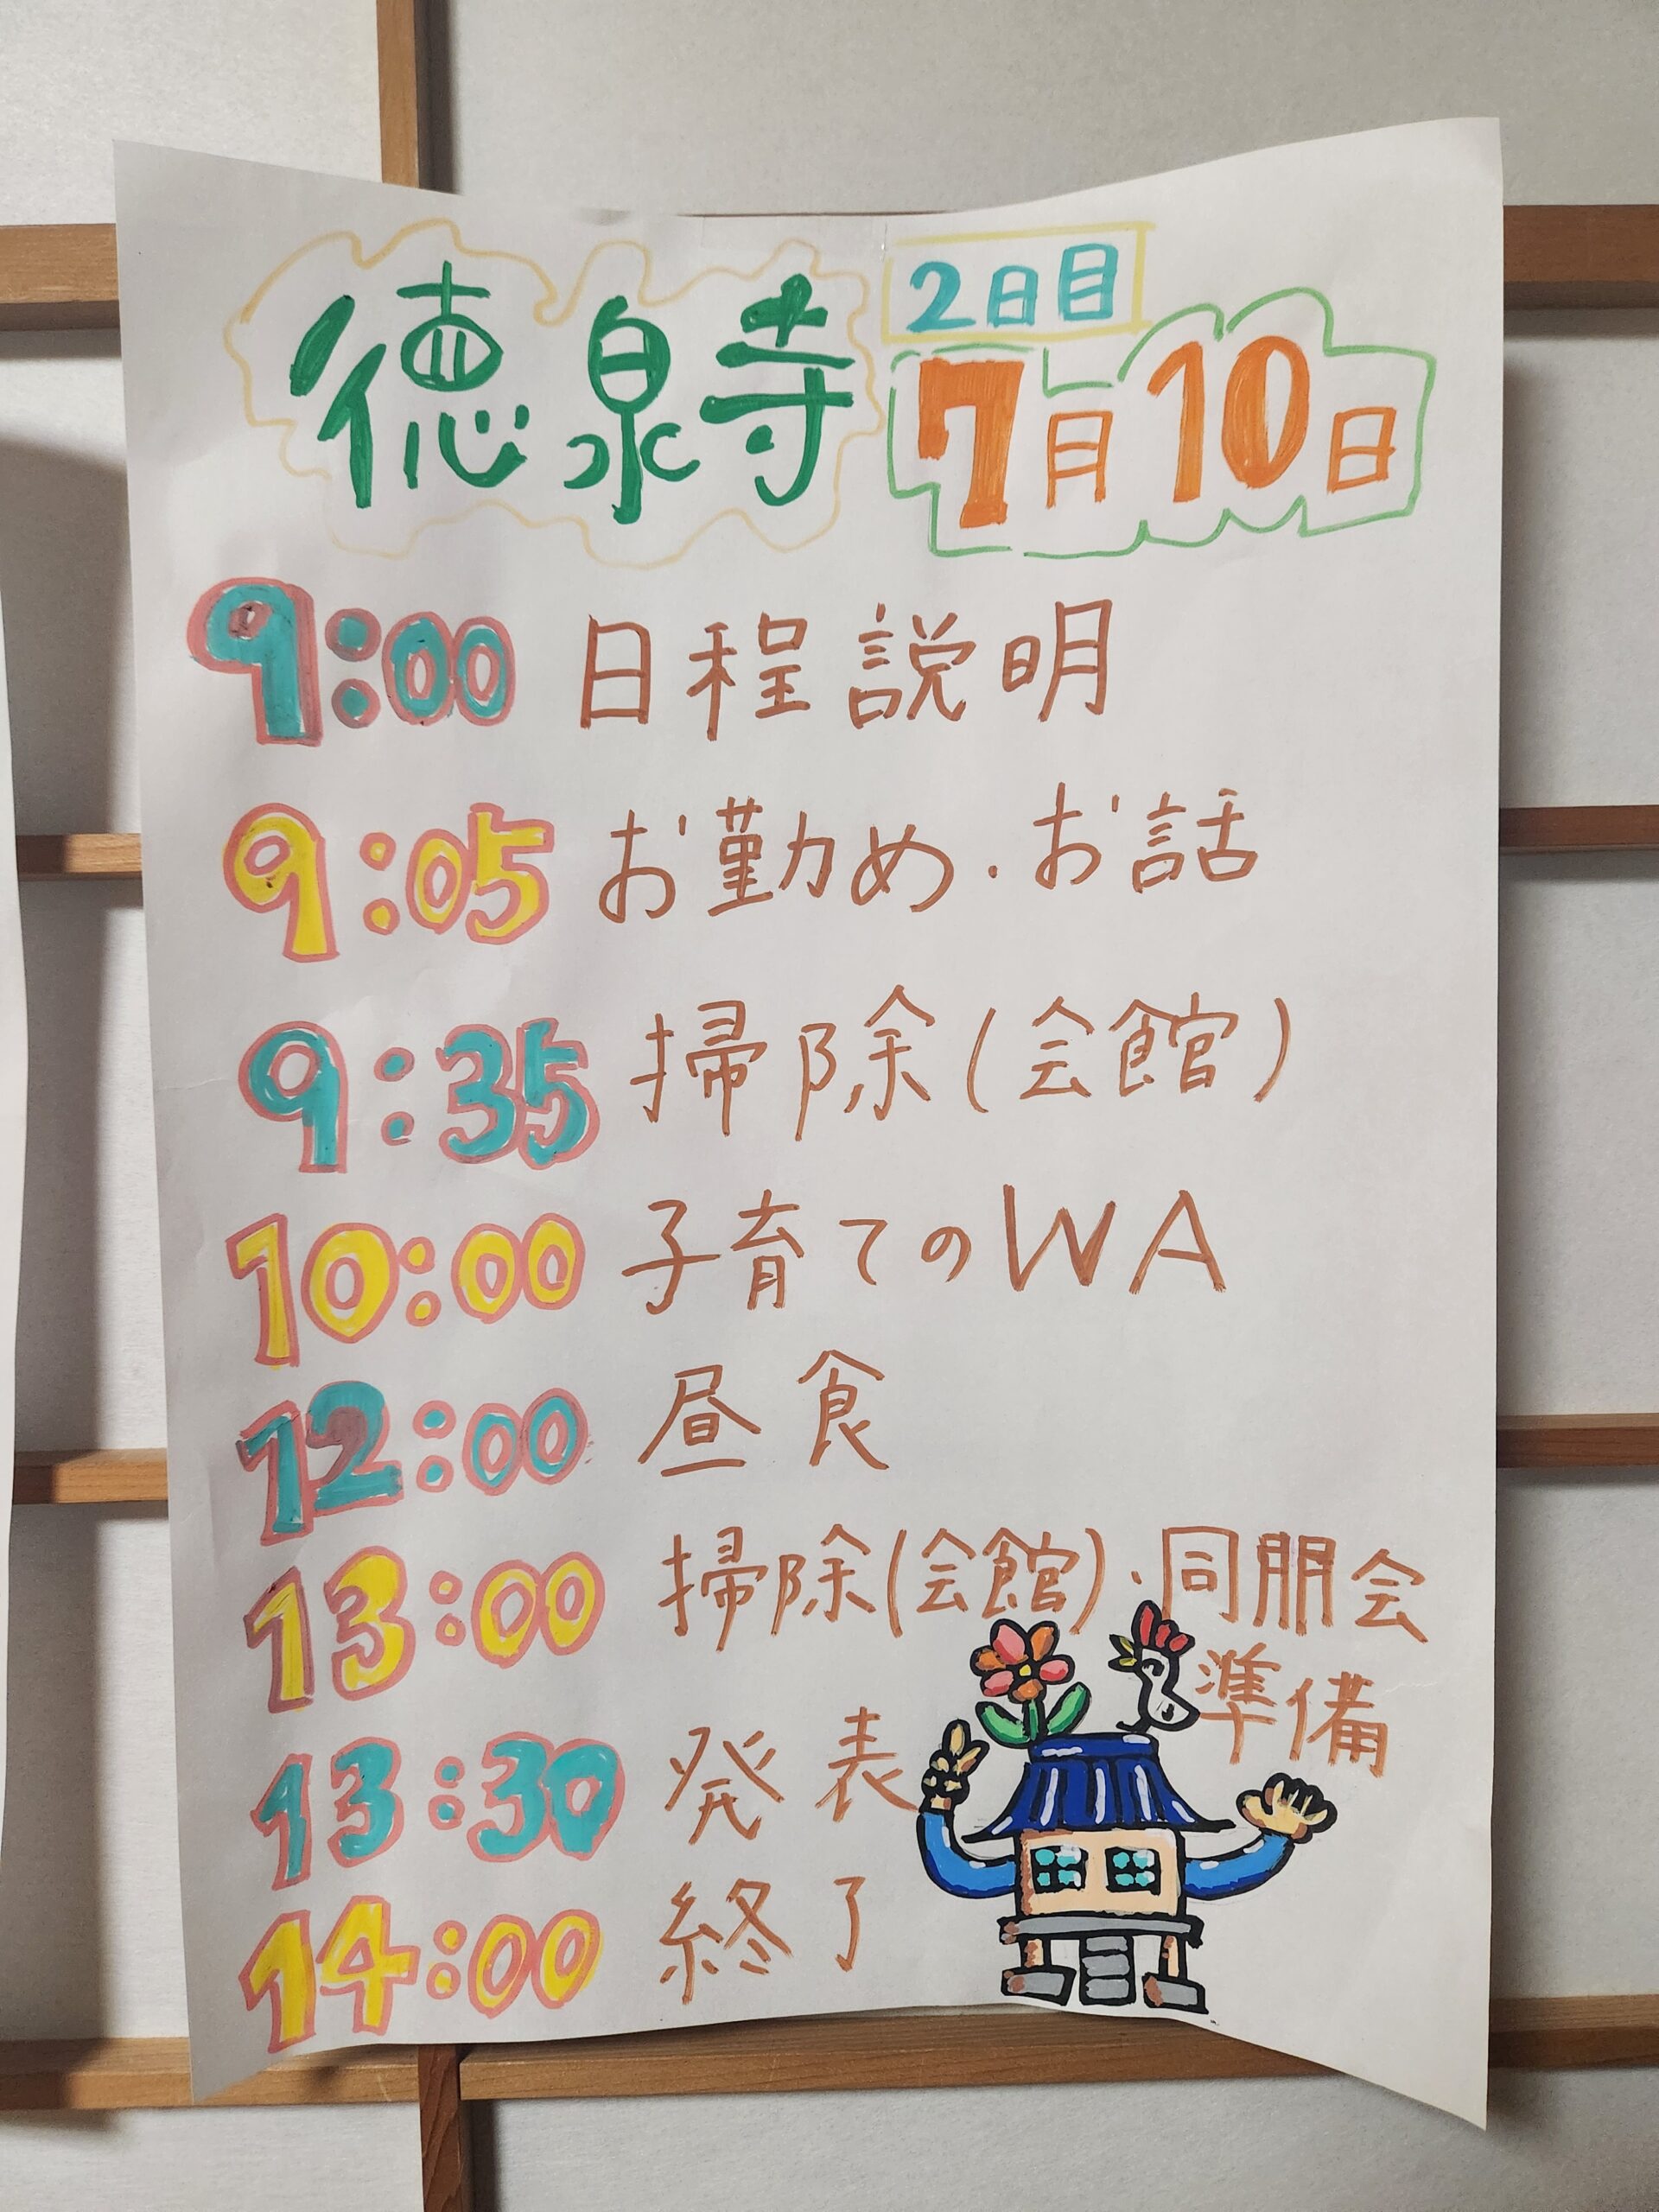 徳泉寺
2日目
7月10日
9:00 日程説明
9:05 お勤め・お話
9:35 掃除(会館)
10:00 子育てのWA
12:00 昼食
13:00 掃除(会館)・同朋会
準備
13:30 発表
14:00 終了